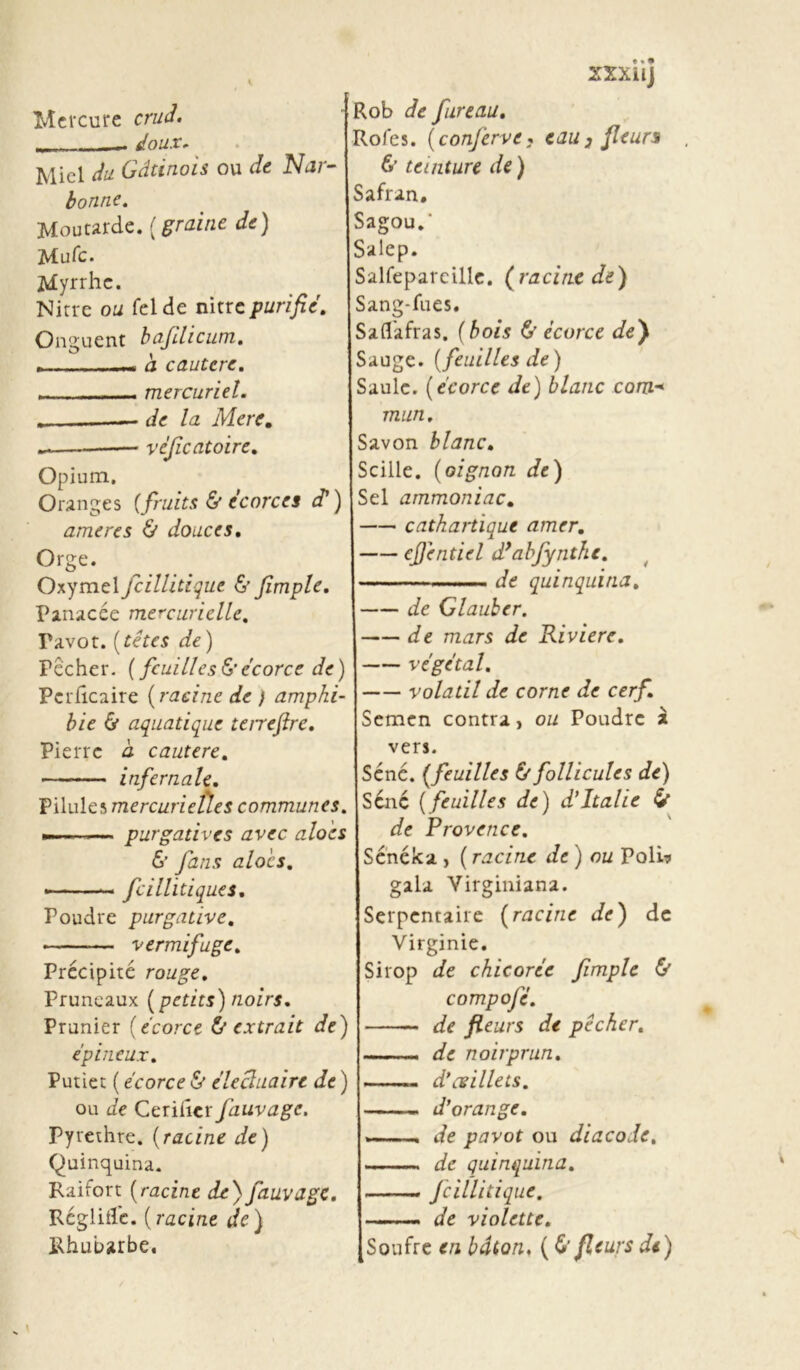 xxxiij
Mercure crud.
—— doux.
Miel du Gâtinois ou de Nar-
bonne.
Moutarde. (graine de)
Muſc.
Myrrhe.
Nitre ou ſel de nitre purifié.
Onguent baſilicum.
—— à cautere.
—— mercuriel.
—— de la Mere.
—— véſicatoire.
Opium.
Oranges (fruits & écorces d')
ameres & douces.
Orge.
Oxymel ſcillitique & ſimple.
Panacée mercurielle.
Pavot. (têtes de)
Pêcher. (feuilles & écorce de)
Perſicaire (racine de) amphi-
bie & aquatique terreſtre.
Pierre à cautere.
—— infernale.
Pilules mercurielles communes.
—— purgatives avec aloès
& ſans aloès.
—— ſcillitiques.
Poudre purgative.
—— vermifuge.
Précipité rouge.
Pruneaux (petits) noirs.
Prunier (écorce & extrait de)
épineux.
Putiet (écorce & électuaire de)
ou de Ceriſier ſauvage.
Pyrethre. (racine de)
Quinquina.
Raifort (racine de) ſauvage.
Régliſſe. (racine de)
Rhubarbe.
Rob de ſureau.
Roſes. (conſerve, eau, fleurs
& teinture de)
Safran.
Sagou.
Salep.
Salſepareille. (racine de)
Sang-ſues.
Saſſafras. (bois & écorce de)
Sauge. (feuilles de)
Saule. (écorce de) blanc com-
mun.
Savon blanc.
Scille. (oignon de)
Sel ammoniac.
—— cathartique amer.
—— eſſentiel d'abſynthe.
—— de quinquina.
—— de Glauber.
—— de mars de Riviere.
—— végétal.
—— volatil de corne de cerf.
Semen contra, ou Poudre à
vers.
Séné. (feuilles & follicules de)
Séné (feuilles de) d'Italie &
de Provence.
Sénéka, (racine de) ou Poly-
gala Virginiana.
Serpentaire (racine de) de
Virginie.
Sirop de chicorée ſimple &
compoſé.
—— de fleurs de pêcher.
—— de noirprun.
—— d'œillets.
—— d'orange.
—— de pavot ou diacode.
—— de quinquina.
—— ſcillitique.
—— de violette.
Soufre en bâton. (& fleurs de)